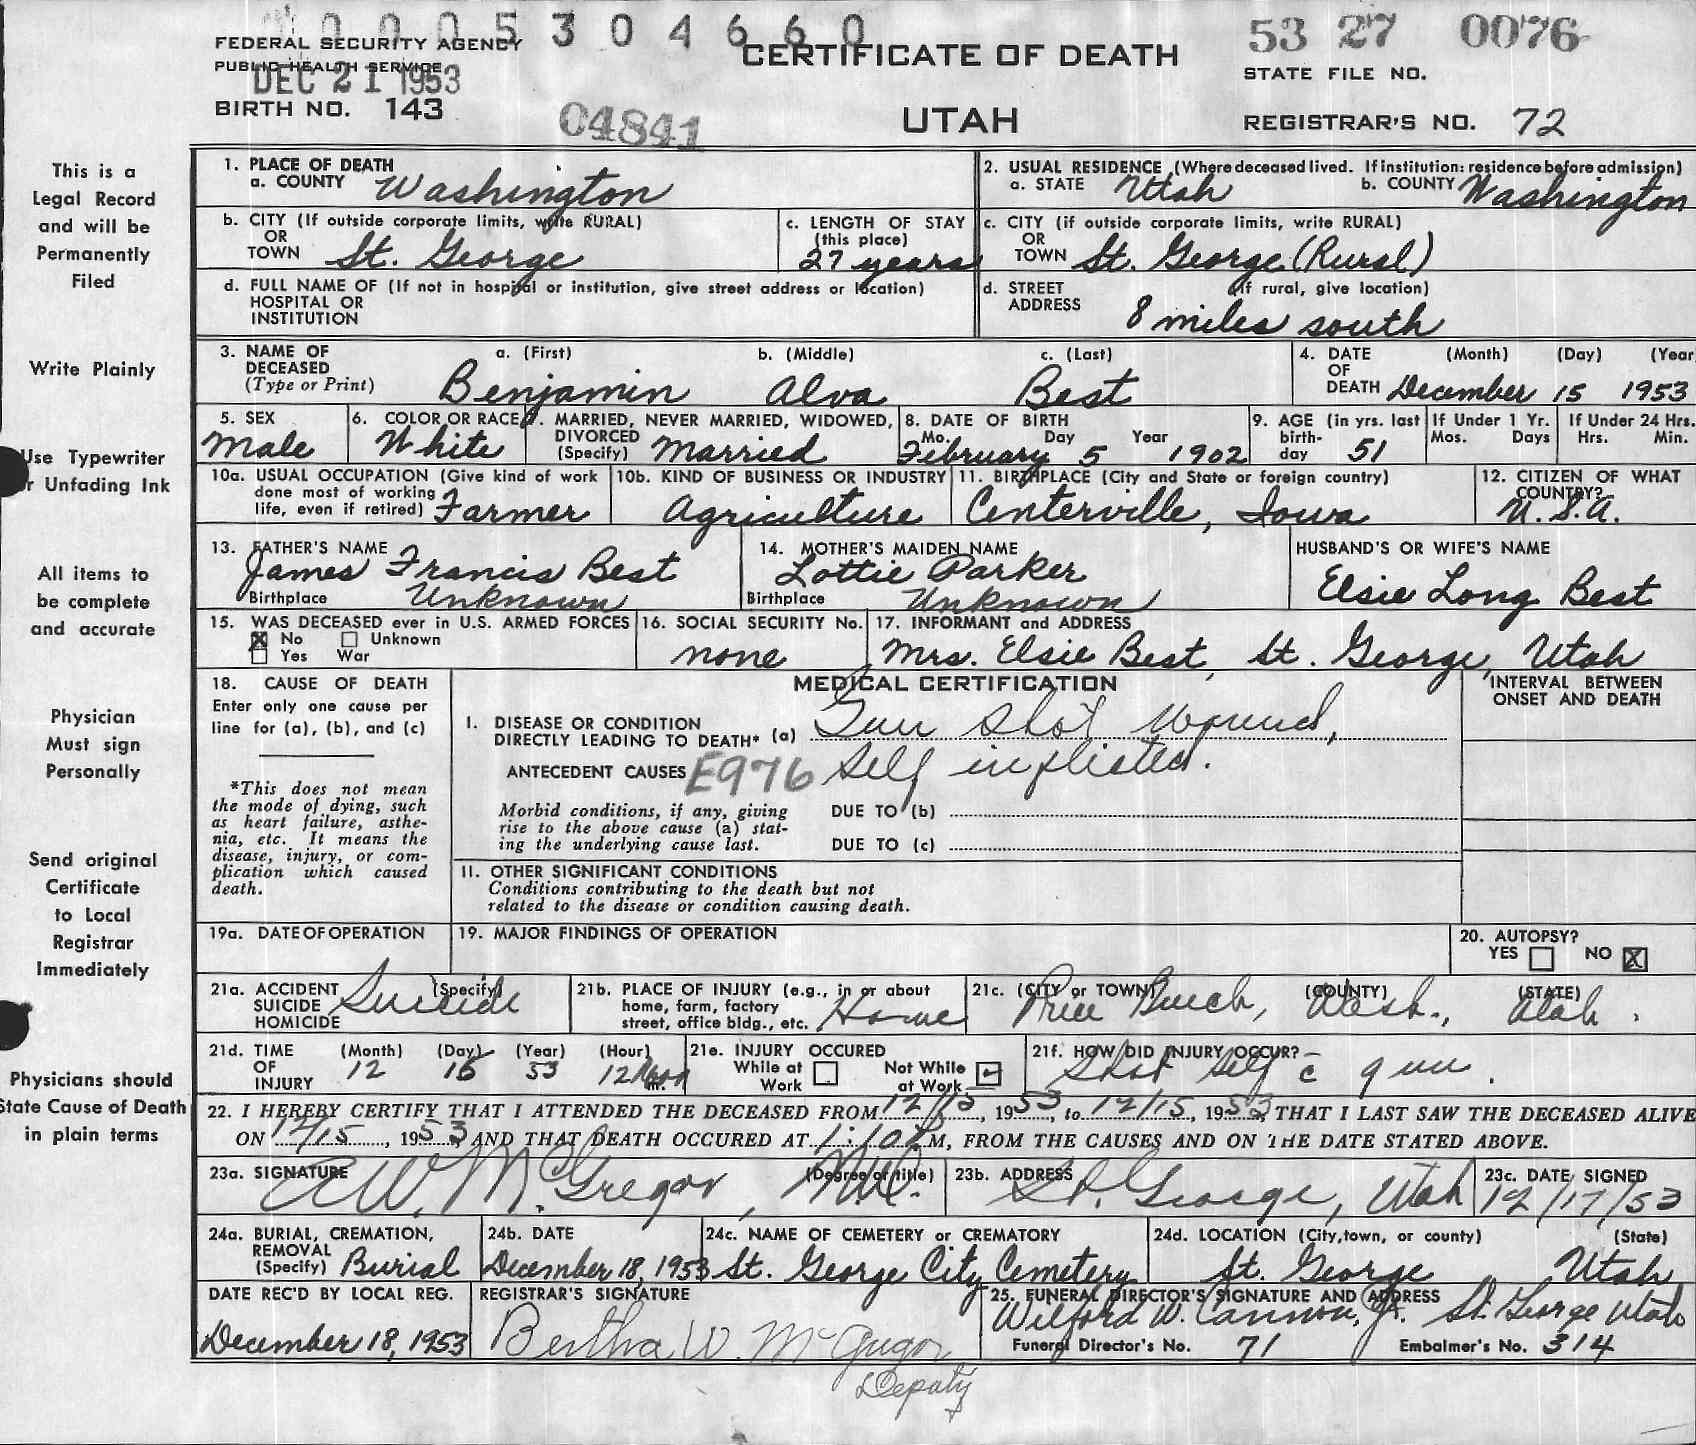 0 0 0 5 3 0 4 6 6 0
53 27 0076
FEDERAL SECURITY AGENCY
PUBLIC HEALTH SERVICE
DEC 21 1953
CERTIFICATE OF DEATH
STATE FILE NO.
BIRTH NO. 143
04841
UTAH
REGISTRAR'S NO. 72
This is a
Legal Record
and will be
Permanently
Filed
Write Plainly
Use Typewriter
or Unfading Ink
All items to
be complete
and accurate
Physician
Must sign
Personally
Send original
Certificate
to Local
Registrar
Immediately
Physicians should
State Cause of Death
in plain terms
1. PLACE OF DEATH
a. COUNTY Washington
2. USUAL RESIDENCE (Where deceased lived. If institution: residence before admission)
a. STATE Utah b. COUNTY Washington
b. CITY (If outside corporate limits, write RURAL)
OR
TOWN St. George
c. LENGTH OF STAY
(this place)
27 years
c. CITY (if outside corporate limits, write RURAL)
OR
TOWN St. George (Rural)
d. FULL NAME OF (If not in hospital or institution, give street address or location)
HOSPITAL OR
INSTITUTION
d. STREET (If rural, give location)
ADDRESS 8 miles south
3. NAME OF DECEASED
(Type or Print)
a. (First) b. (Middle) c. (Last)
Benjamin Alva Best
4. DATE OF DEATH (Month) (Day) (Year
December 15 1953
5. SEX
Male
6. COLOR OR RACE
White
7. MARRIED, NEVER MARRIED, WIDOWED,
DIVORCED
(Specify) Married
8. DATE OF BIRTH
Mo. Day Year
February 5 1902
9. AGE (in yrs. last
birth-
day 51
If Under 1 Yr.
Mos. Days
If Under 24 Hrs.
Hrs. Min.
10a. USUAL OCCUPATION (Give kind of work
done most of working
life, even if retired) Farmer
10b. KIND OF BUSINESS OR INDUSTRY
Agriculture
11. BIRTHPLACE (City and State or foreign country)
Centerville, Iowa
12. CITIZEN OF WHAT
COUNTRY?
U.S.A.
13. FATHER'S NAME
James Francis Best
Birthplace Unknown
14. MOTHER'S MAIDEN NAME
Lottie Parker
Birthplace Unknown
HUSBAND'S OR WIFE'S NAME
Elsie Long Best
15. WAS DECEASED ever in U.S. ARMED FORCES
No Unknown
Yes War
16. SOCIAL SECURITY No.
none
17. INFORMANT and ADDRESS
Mrs. Elsie Best, St. George, Utah
18. CAUSE OF DEATH
Enter only one cause per
line for (a), (b), and (c)
*This does not mean
the mode of dying, such
as heart failure, asthe-
nia, etc. It means the
disease, injury, or com-
plication which caused
death.
MEDICAL CERTIFICATION
INTERVAL BETWEEN
ONSET AND DEATH
I. DISEASE OR CONDITION
DIRECTLY LEADING TO DEATH* (a) Gun shot wound,
ANTECEDENT CAUSES E976 self inflicted.
Morbid conditions, if any, giving
rise to the above cause (a) stat-
ing the underlying cause last.
DUE TO (b)
DUE TO (c)
II. OTHER SIGNIFICANT CONDITIONS
Conditions contributing to the death but not
related to the disease or condition causing death.
19a. DATE OF OPERATION
19. MAJOR FINDINGS OF OPERATION
20. AUTOPSY?
YES NO X
21a. ACCIDENT (Specify)
SUICIDE
HOMICIDE
Suicide
21b. PLACE OF INJURY (e.g., in or about
home, farm, factory
street, office bldg., etc. Home
21c. (CITY or TOWN) (COUNTY) (STATE)
Price Bench, Wash., Utah.
21d. TIME OF INJURY (Month) (Day) (Year) (Hour)
12 15 53 12 Noon m.
21e. INJURY OCCURED
While at
Work
Not While
at Work
21f. HOW DID INJURY OCCUR?
Shot self c̄ gun.
22. I HEREBY CERTIFY THAT I ATTENDED THE DECEASED FROM 12/15, 1953, to 12/15, 1953, THAT I LAST SAW THE DECEASED ALIVE
ON 12/15, 1953 AND THAT DEATH OCCURED AT 1:10 P M, FROM THE CAUSES AND ON THE DATE STATED ABOVE.
23a. SIGNATURE (Degree or title)
A.W. McGregor, M.D.
23b. ADDRESS
St. George, Utah
23c. DATE SIGNED
12/17/53
24a. BURIAL, CREMATION,
REMOVAL
(Specify) Burial
24b. DATE
December 18, 1953
24c. NAME OF CEMETERY or CREMATORY
St. George City Cemetery
24d. LOCATION (City, town, or county) (State)
St. George Utah
DATE REC'D BY LOCAL REG.
December 18, 1953
REGISTRAR'S SIGNATURE
Bertha W. McGregor
Deputy
25. FUNERAL DIRECTOR'S SIGNATURE AND ADDRESS
Wilford W. Cannon, Jr. St. George Utah
Funeral Director's No. 71 Embalmer's No. 314